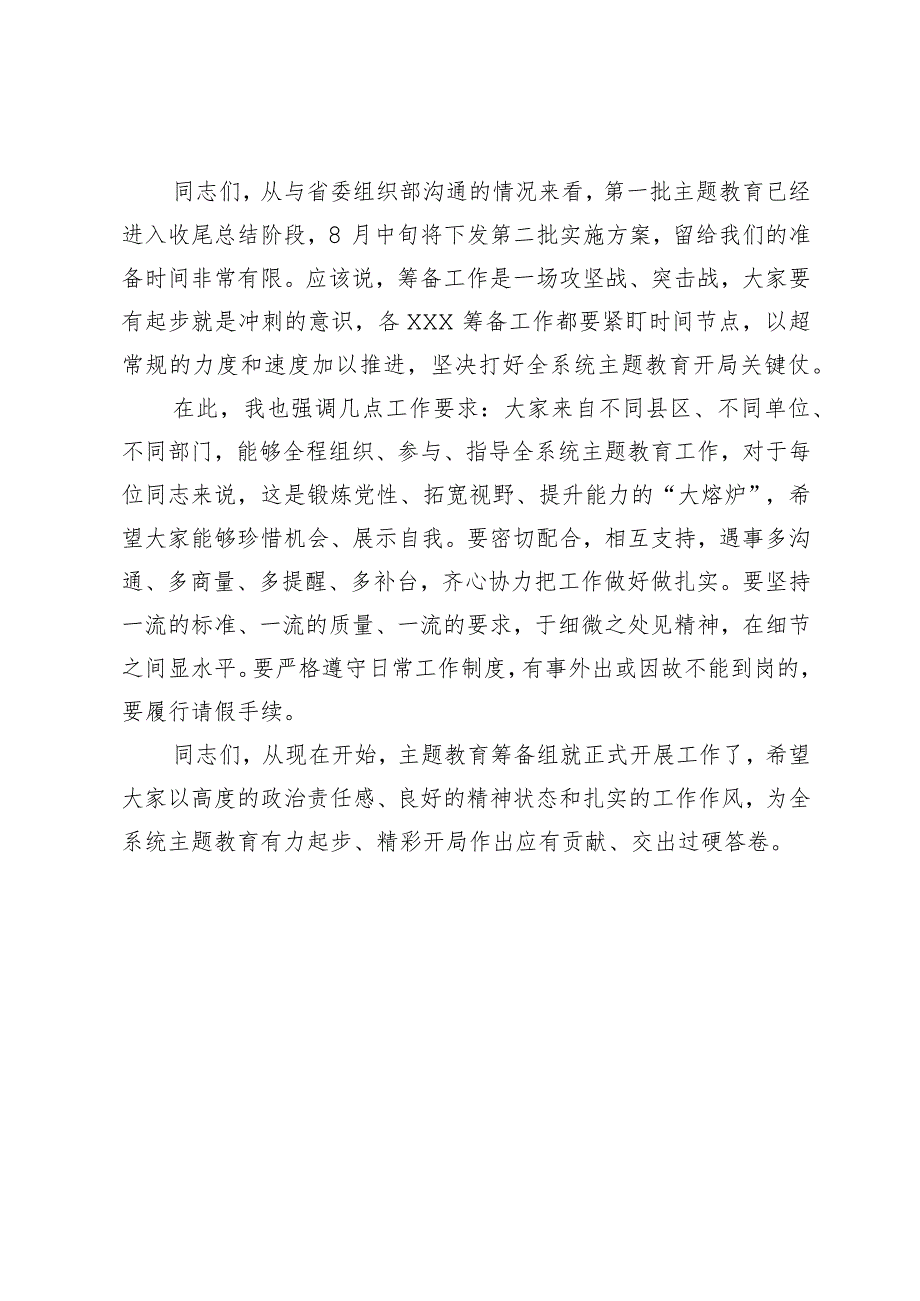 同志们，从与省委组织部沟通的情况来看，第一批主题教育已经
进入收尾总结阶段，8 月中旬将下发第二批实施方案，留给我们的准
备时间非常有限。应该说，筹备工作是一场攻坚战、突击战，大家要
有起步就是冲刺的意识，各 XXX 筹备工作都要紧盯时间节点，以超
常规的力度和速度加以推进，坚决打好全系统主题教育开局关键仗。
在此，我也强调几点工作要求：大家来自不同县区、不同单位、
不同部门，能够全程组织、参与、指导全系统主题教育工作，对于每
位同志来说，这是锻炼党性、拓宽视野、提升能力的“大熔炉”，希
望大家能够珍惜机会、展示自我。要密切配合，相互支持，遇事多沟
通、多商量、多提醒、多补台，齐心协力把工作做好做扎实。要坚持
一流的标准、一流的质量、一流的要求，于细微之处见精神，在细节
之间显水平。要严格遵守日常工作制度，有事外出或因故不能到岗的，
要履行请假手续。
同志们，从现在开始，主题教育筹备组就正式开展工作了，希望
大家以高度的政治责任感、良好的精神状态和扎实的工作作风，为全
系统主题教育有力起步、精彩开局作出应有贡献、交出过硬答卷。